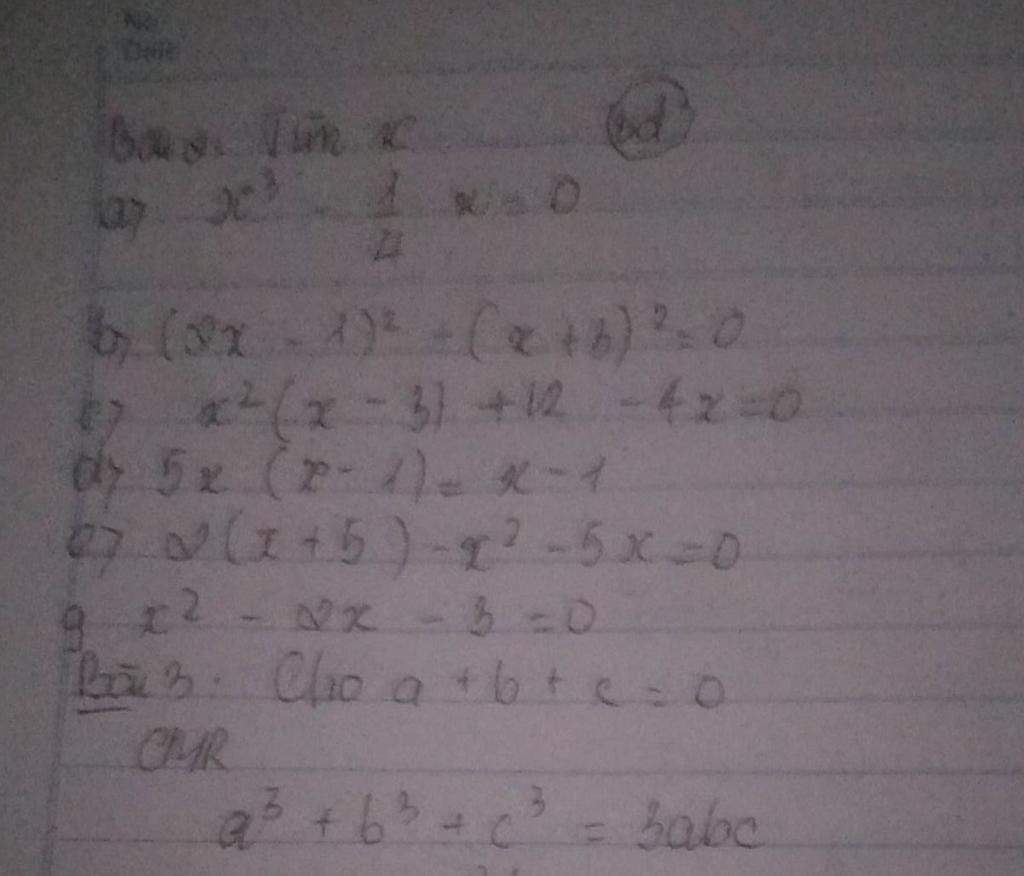 No.
Date
Bài 2. Tìm x
a) x³ - 1/4 x = 0
b, (2x - 1)² - (x + 3)² = 0
c) x² (x - 3) + 12 - 4x = 0
d) 5x (x - 1) = x - 1
e) 2(x + 5) - x² - 5x = 0
g x² - 2x - 3 = 0
Bài 3. Cho a + b + c = 0
CMR
a³ + b³ + c³ = 3abc